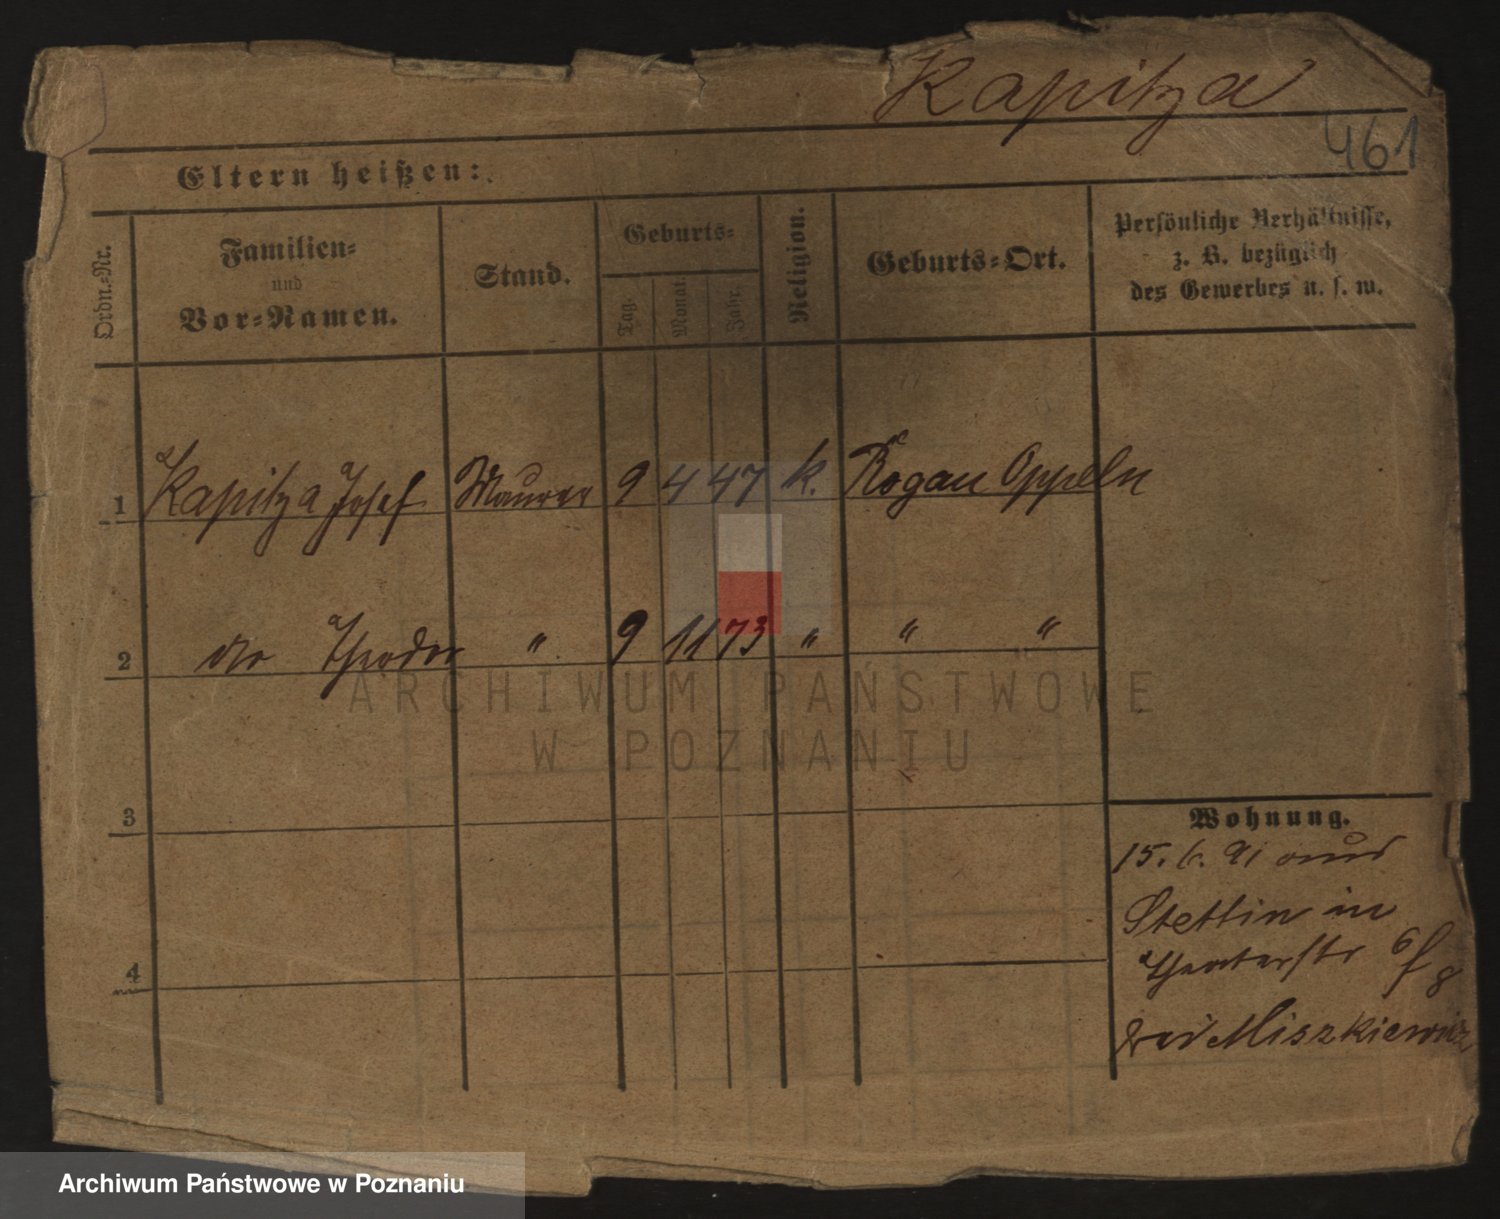 Kapitza
461
Eltern heißen:
Ordn.-Nr.
Familien-
und
Vor-Namen.
Stand.
Geburts-
Tag.
Monat.
Jahr.
Religion.
Geburts-Ort.
Persönliche Verhältnisse,
z. B. bezüglich
des Gewerbes u. s. w.
1 Kapitza Josef Maurer 9 4 47 k. Rogau Oppeln
2 do Theodor " 9 11 73 " " "
3
4
Wohnung.
15. 6. 91
Stettin in
Theaterstr 6/8
bei Miszkiewicz
ARCHIWUM PAŃSTWOWE
W POZNANIU
Archiwum Państwowe w Poznaniu